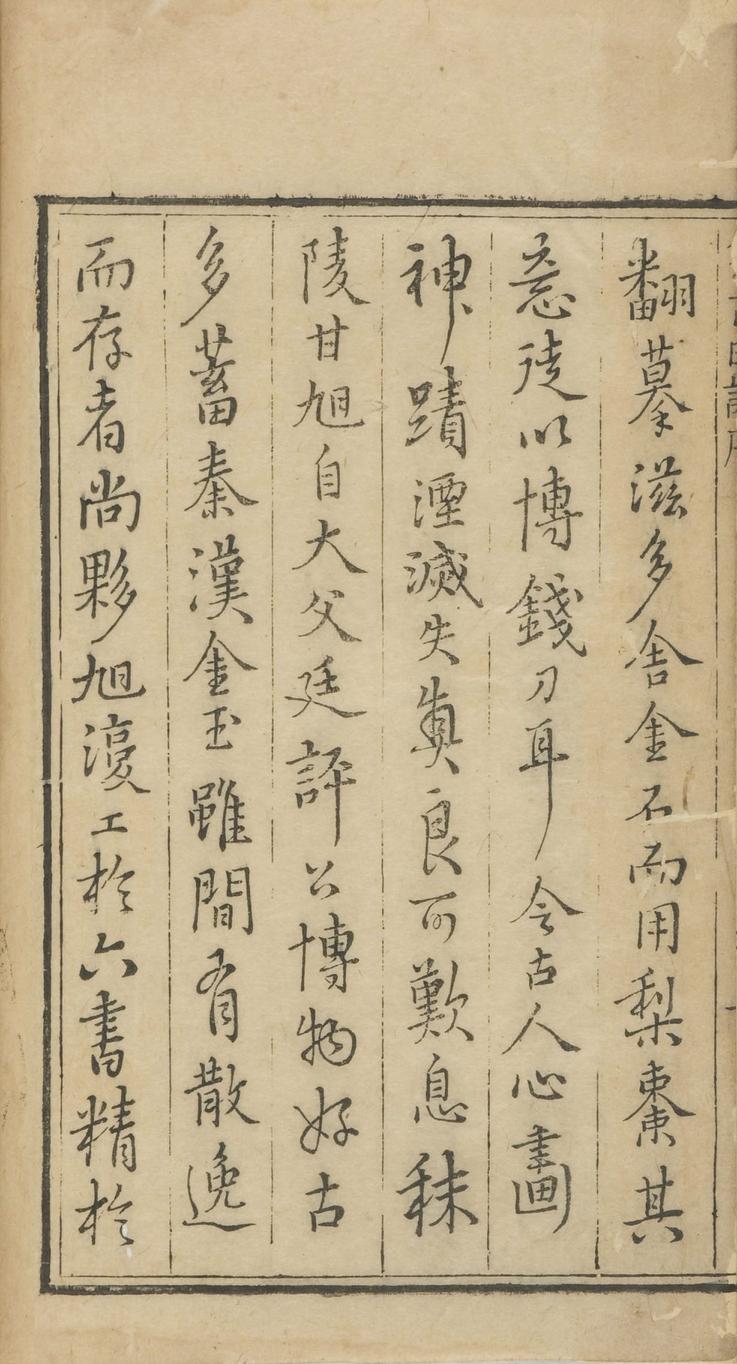 翻摹滋多舍金石而用梨棗其
意徒以博錢刀耳令古人心畫
神蹟湮滅失真良可歎息秣
陵甘旭自大父廷評公博物好古
多蓄秦漢金玉雖間有散逸
而存者尚夥旭濅工於六書精於